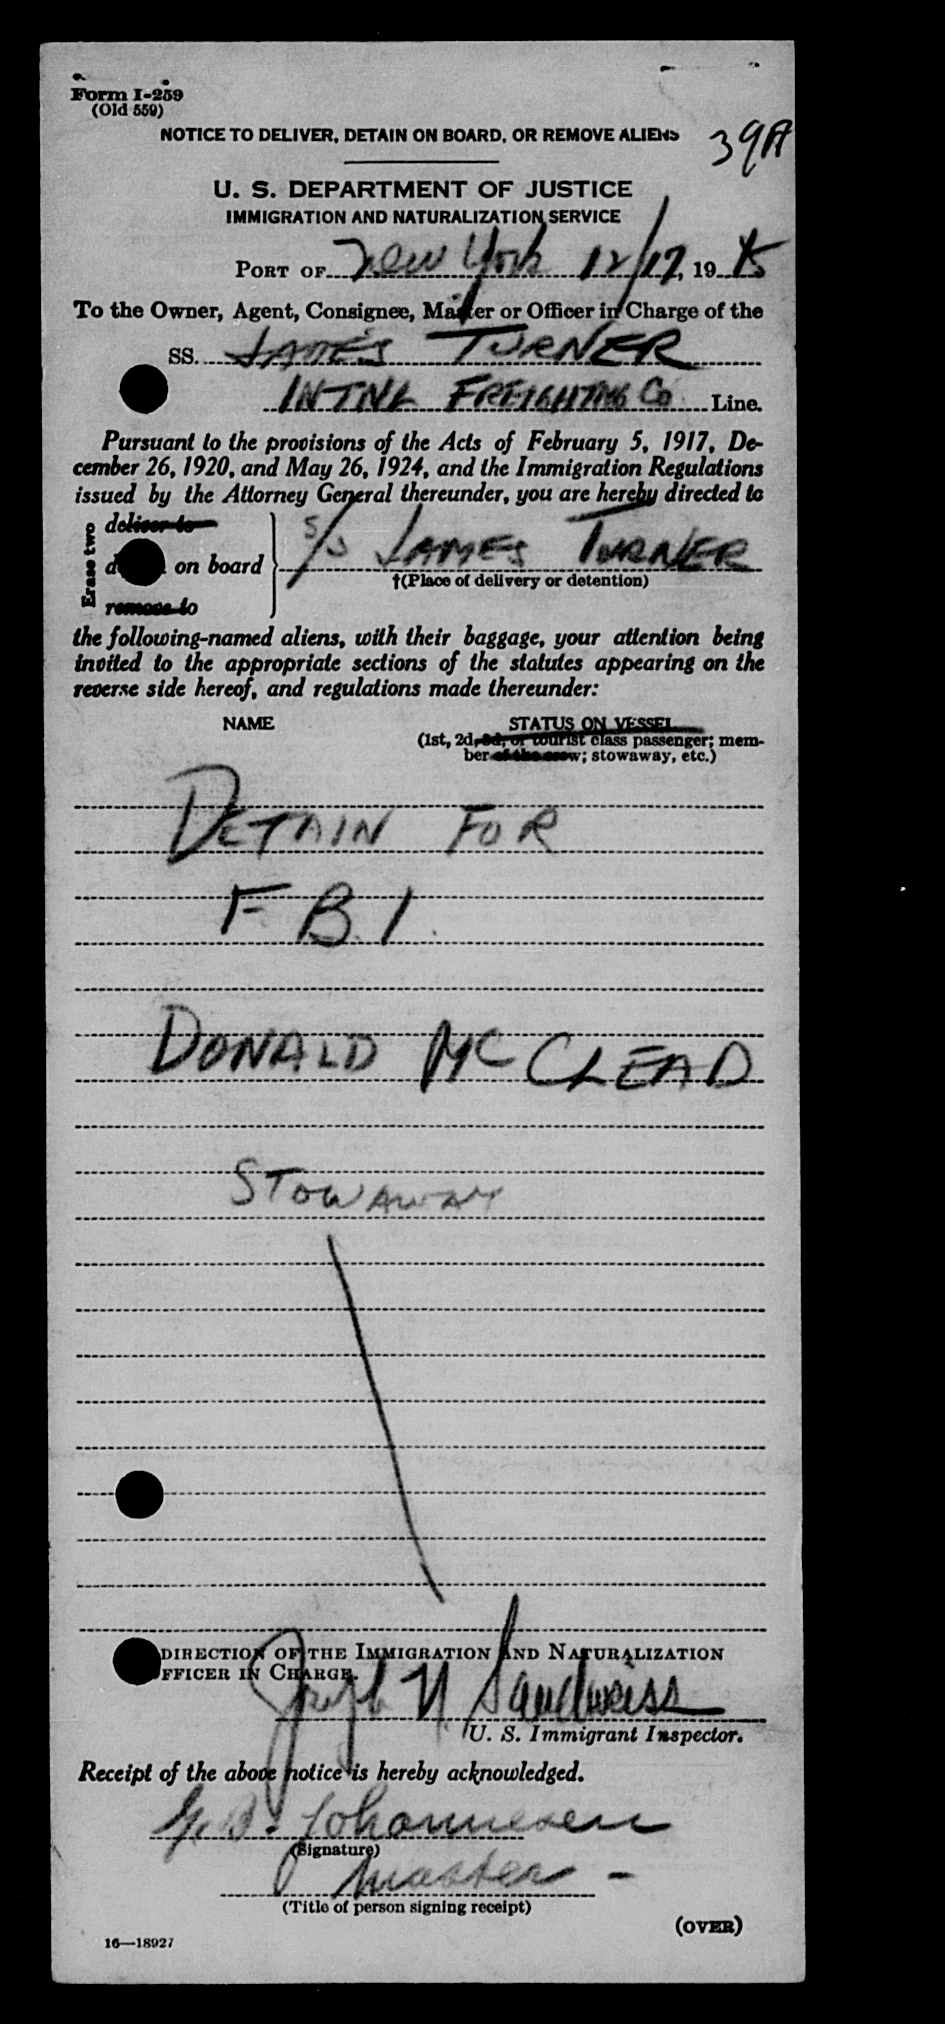 Form I-259
(Old 559)
NOTICE TO DELIVER, DETAIN ON BOARD, OR REMOVE ALIENS
39A
U. S. DEPARTMENT OF JUSTICE
IMMIGRATION AND NATURALIZATION SERVICE
PORT OF New York 12/17, 1945
To the Owner, Agent, Consignee, Master or Officer in Charge of the
SS. JAMES TURNER
INTNL FREIGHTING Co Line.
Pursuant to the provisions of the Acts of February 5, 1917, De-
cember 26, 1920, and May 26, 1924, and the Immigration Regulations
issued by the Attorney General thereunder, you are hereby directed to
Erase two
deliver to
on board
remove to
S/S JAMES TURNER
†(Place of delivery or detention)
the following-named aliens, with their baggage, your attention being
invited to the appropriate sections of the statutes appearing on the
reverse side hereof, and regulations made thereunder:
NAME
STATUS ON VESSEL
(1st, 2d, 3d, or tourist class passenger; mem-
ber of the crew; stowaway, etc.)
DETAIN FOR
F.B.I.
DONALD MC CLEAD
STOWAWAY
DIRECTION OF THE IMMIGRATION AND NATURALIZATION
FFICER IN CHARGE.
Joseph N. Sandweiss
U. S. Immigrant Inspector.
Receipt of the above notice is hereby acknowledged.
Johannesen
(Signature)
Master -
(Title of person signing receipt)
(OVER)
16—18927